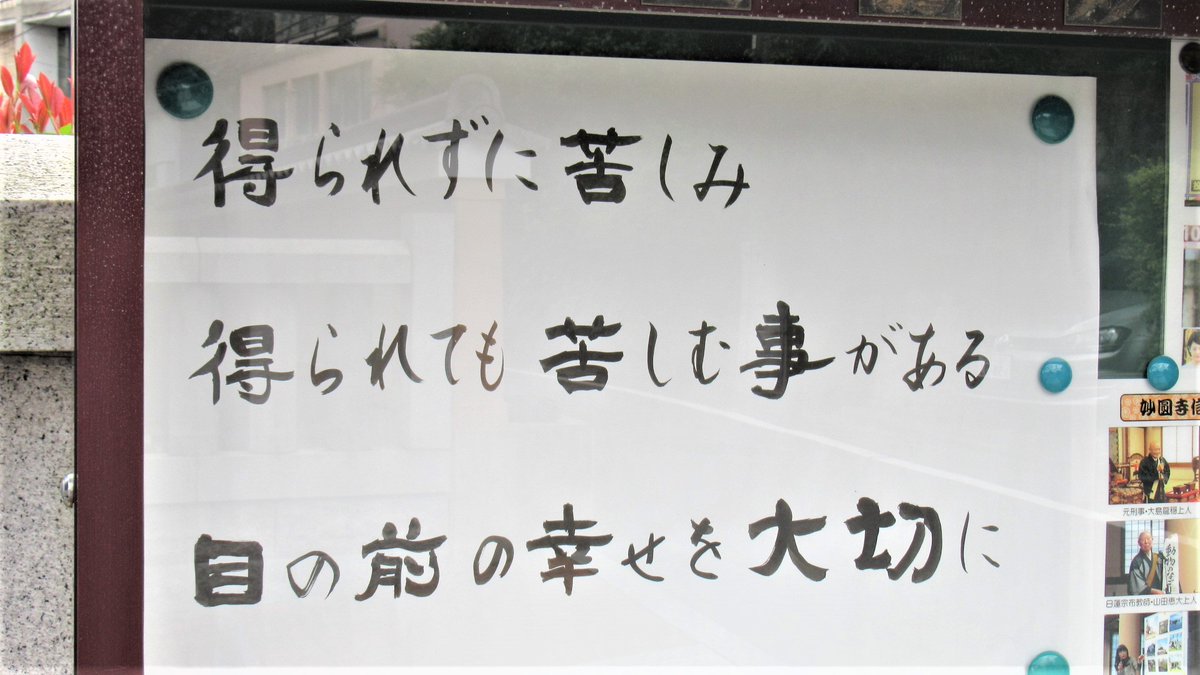 得られずに苦しみ
得られても苦しむ事がある
目の前の幸せを大切に
妙圓寺信
元刑事・大島龍穏上人
日蓮宗布教師・山田恵大上人